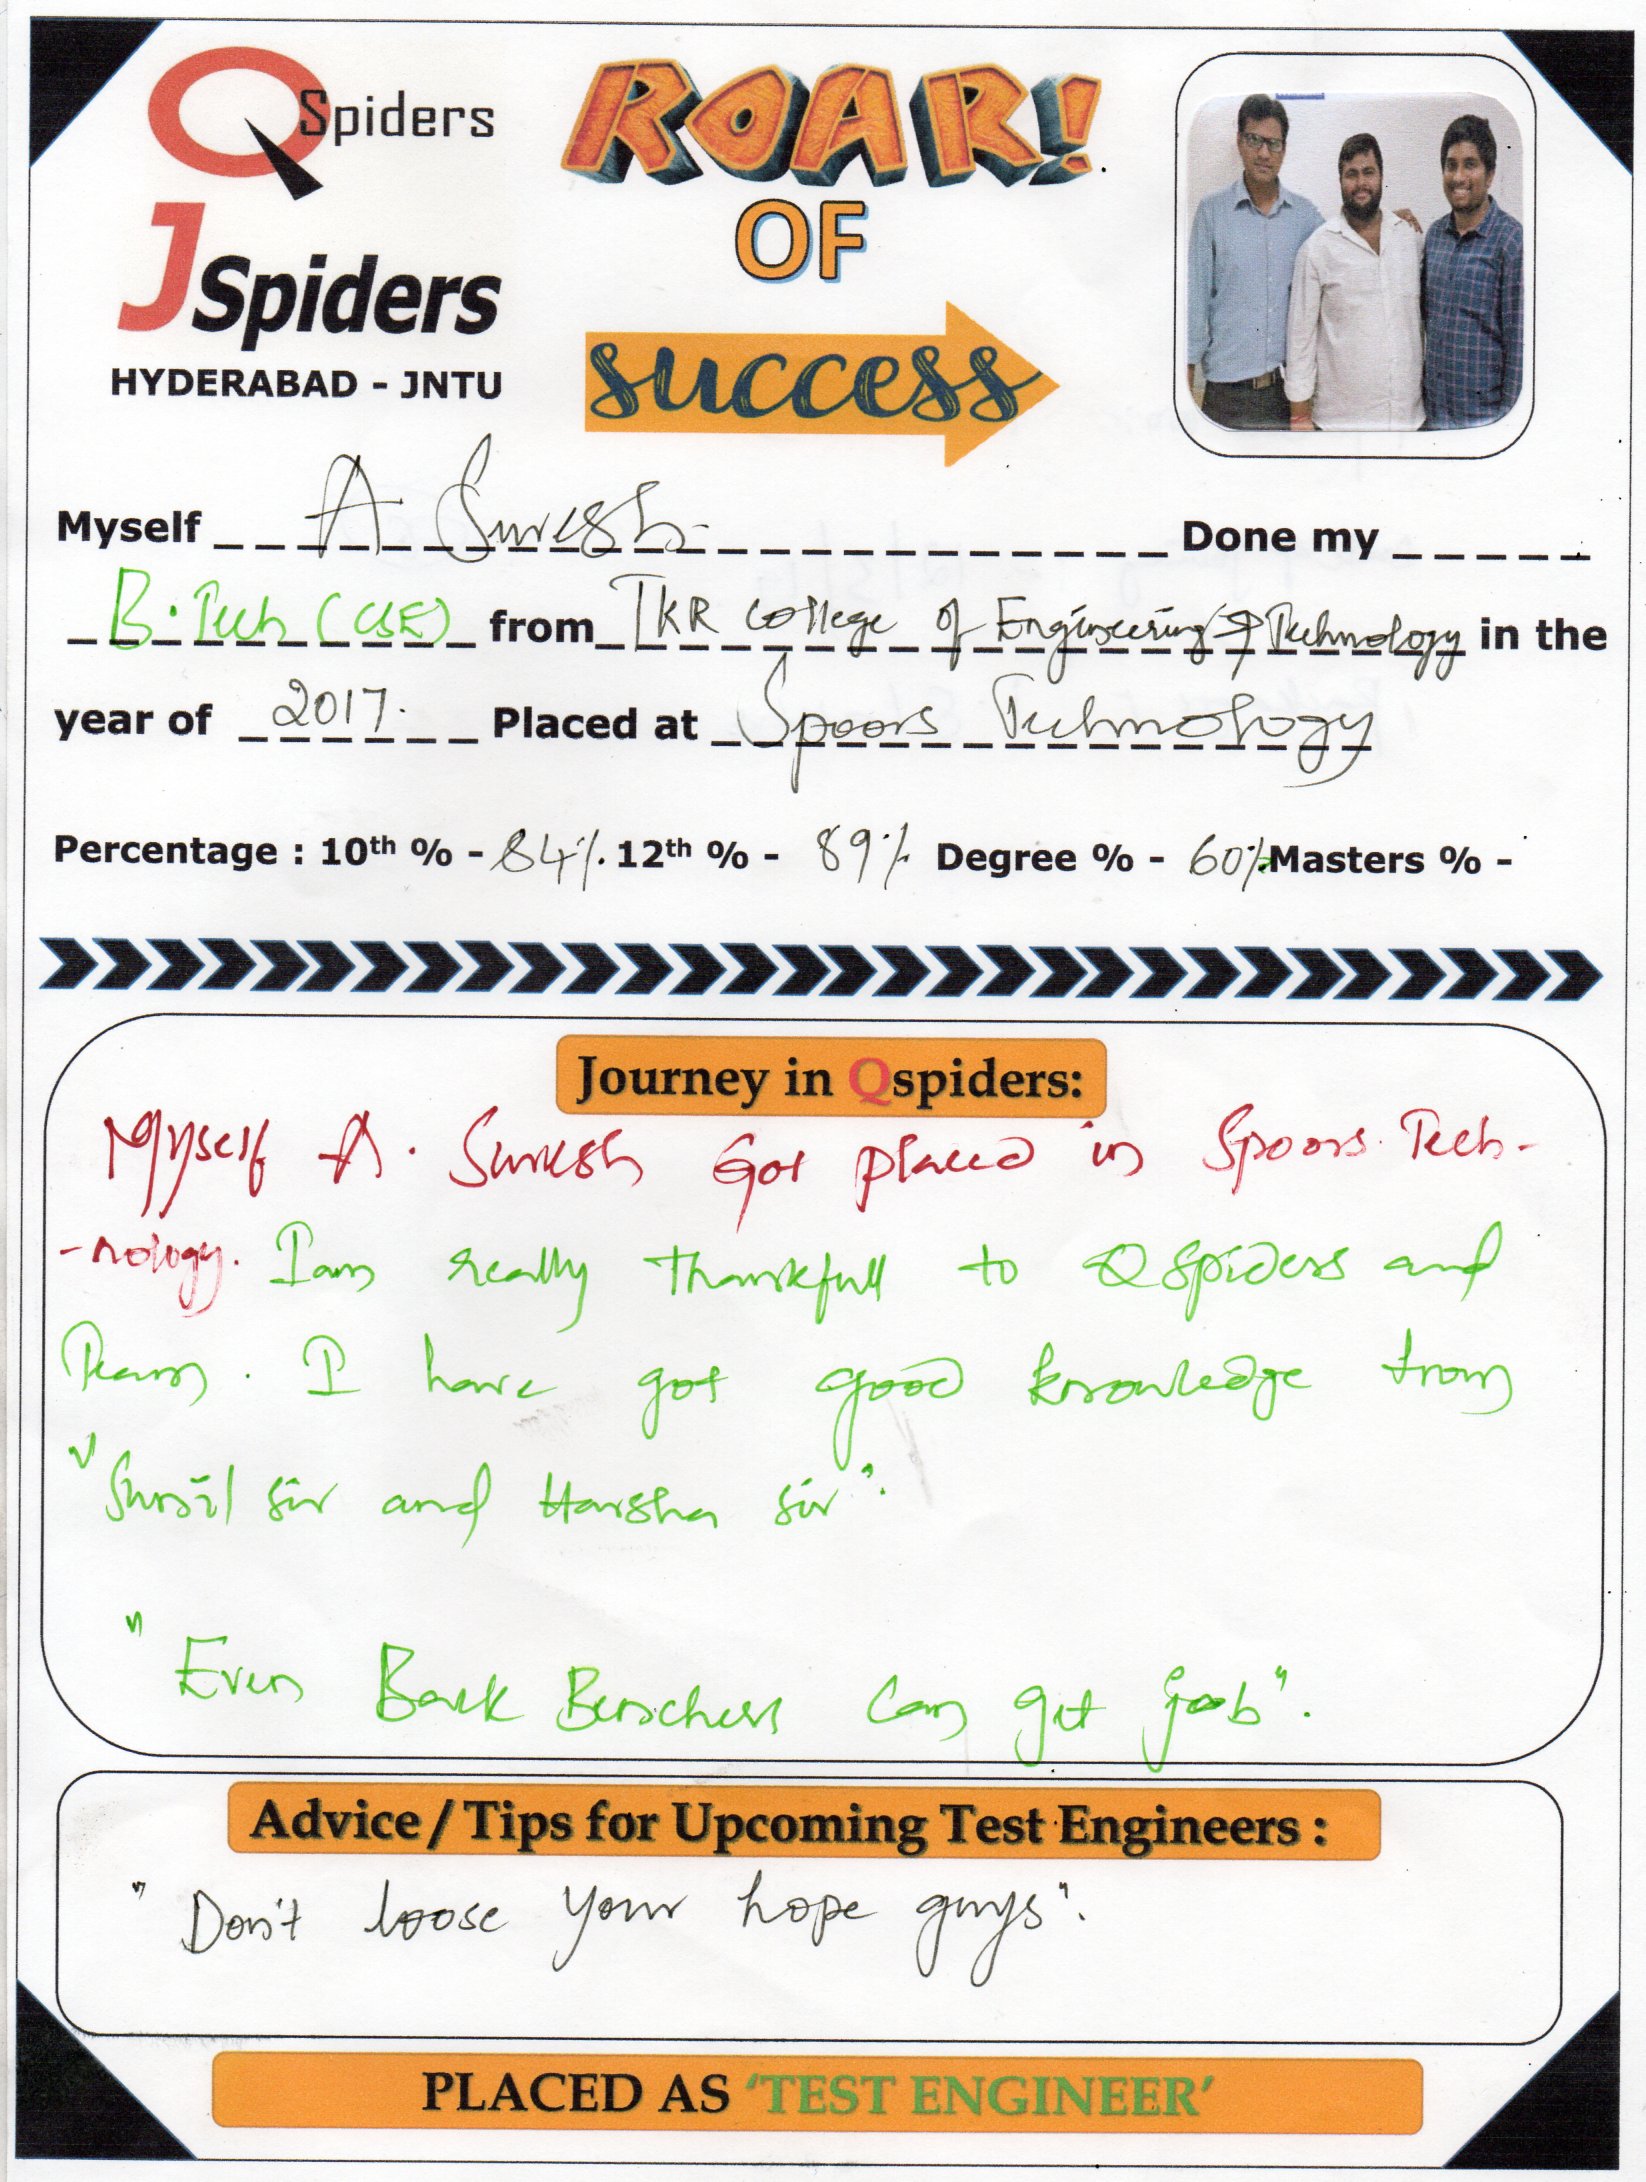 QSpiders
ROAR!
OF
success
JSpiders
HYDERABAD - JNTU
Myself A Suresh Done my
B.Tech (CSE) from TKR College of Engineering & Technology in the
year of 2017. Placed at Spoors Technology
Percentage : 10th % - 84% 12th % - 89% Degree % - 60% Masters % -
Journey in Qspiders:
Myself A. Suresh Got placed in Spoors Tech-
-nology. I am really thankfull to QSpiders and
Team. I have got good knowledge from
"Sunil sir and Harsha sir".
"Even Back Benchers can get job".
Advice / Tips for Upcoming Test Engineers :
"Don't loose your hope guys".
PLACED AS 'TEST ENGINEER'